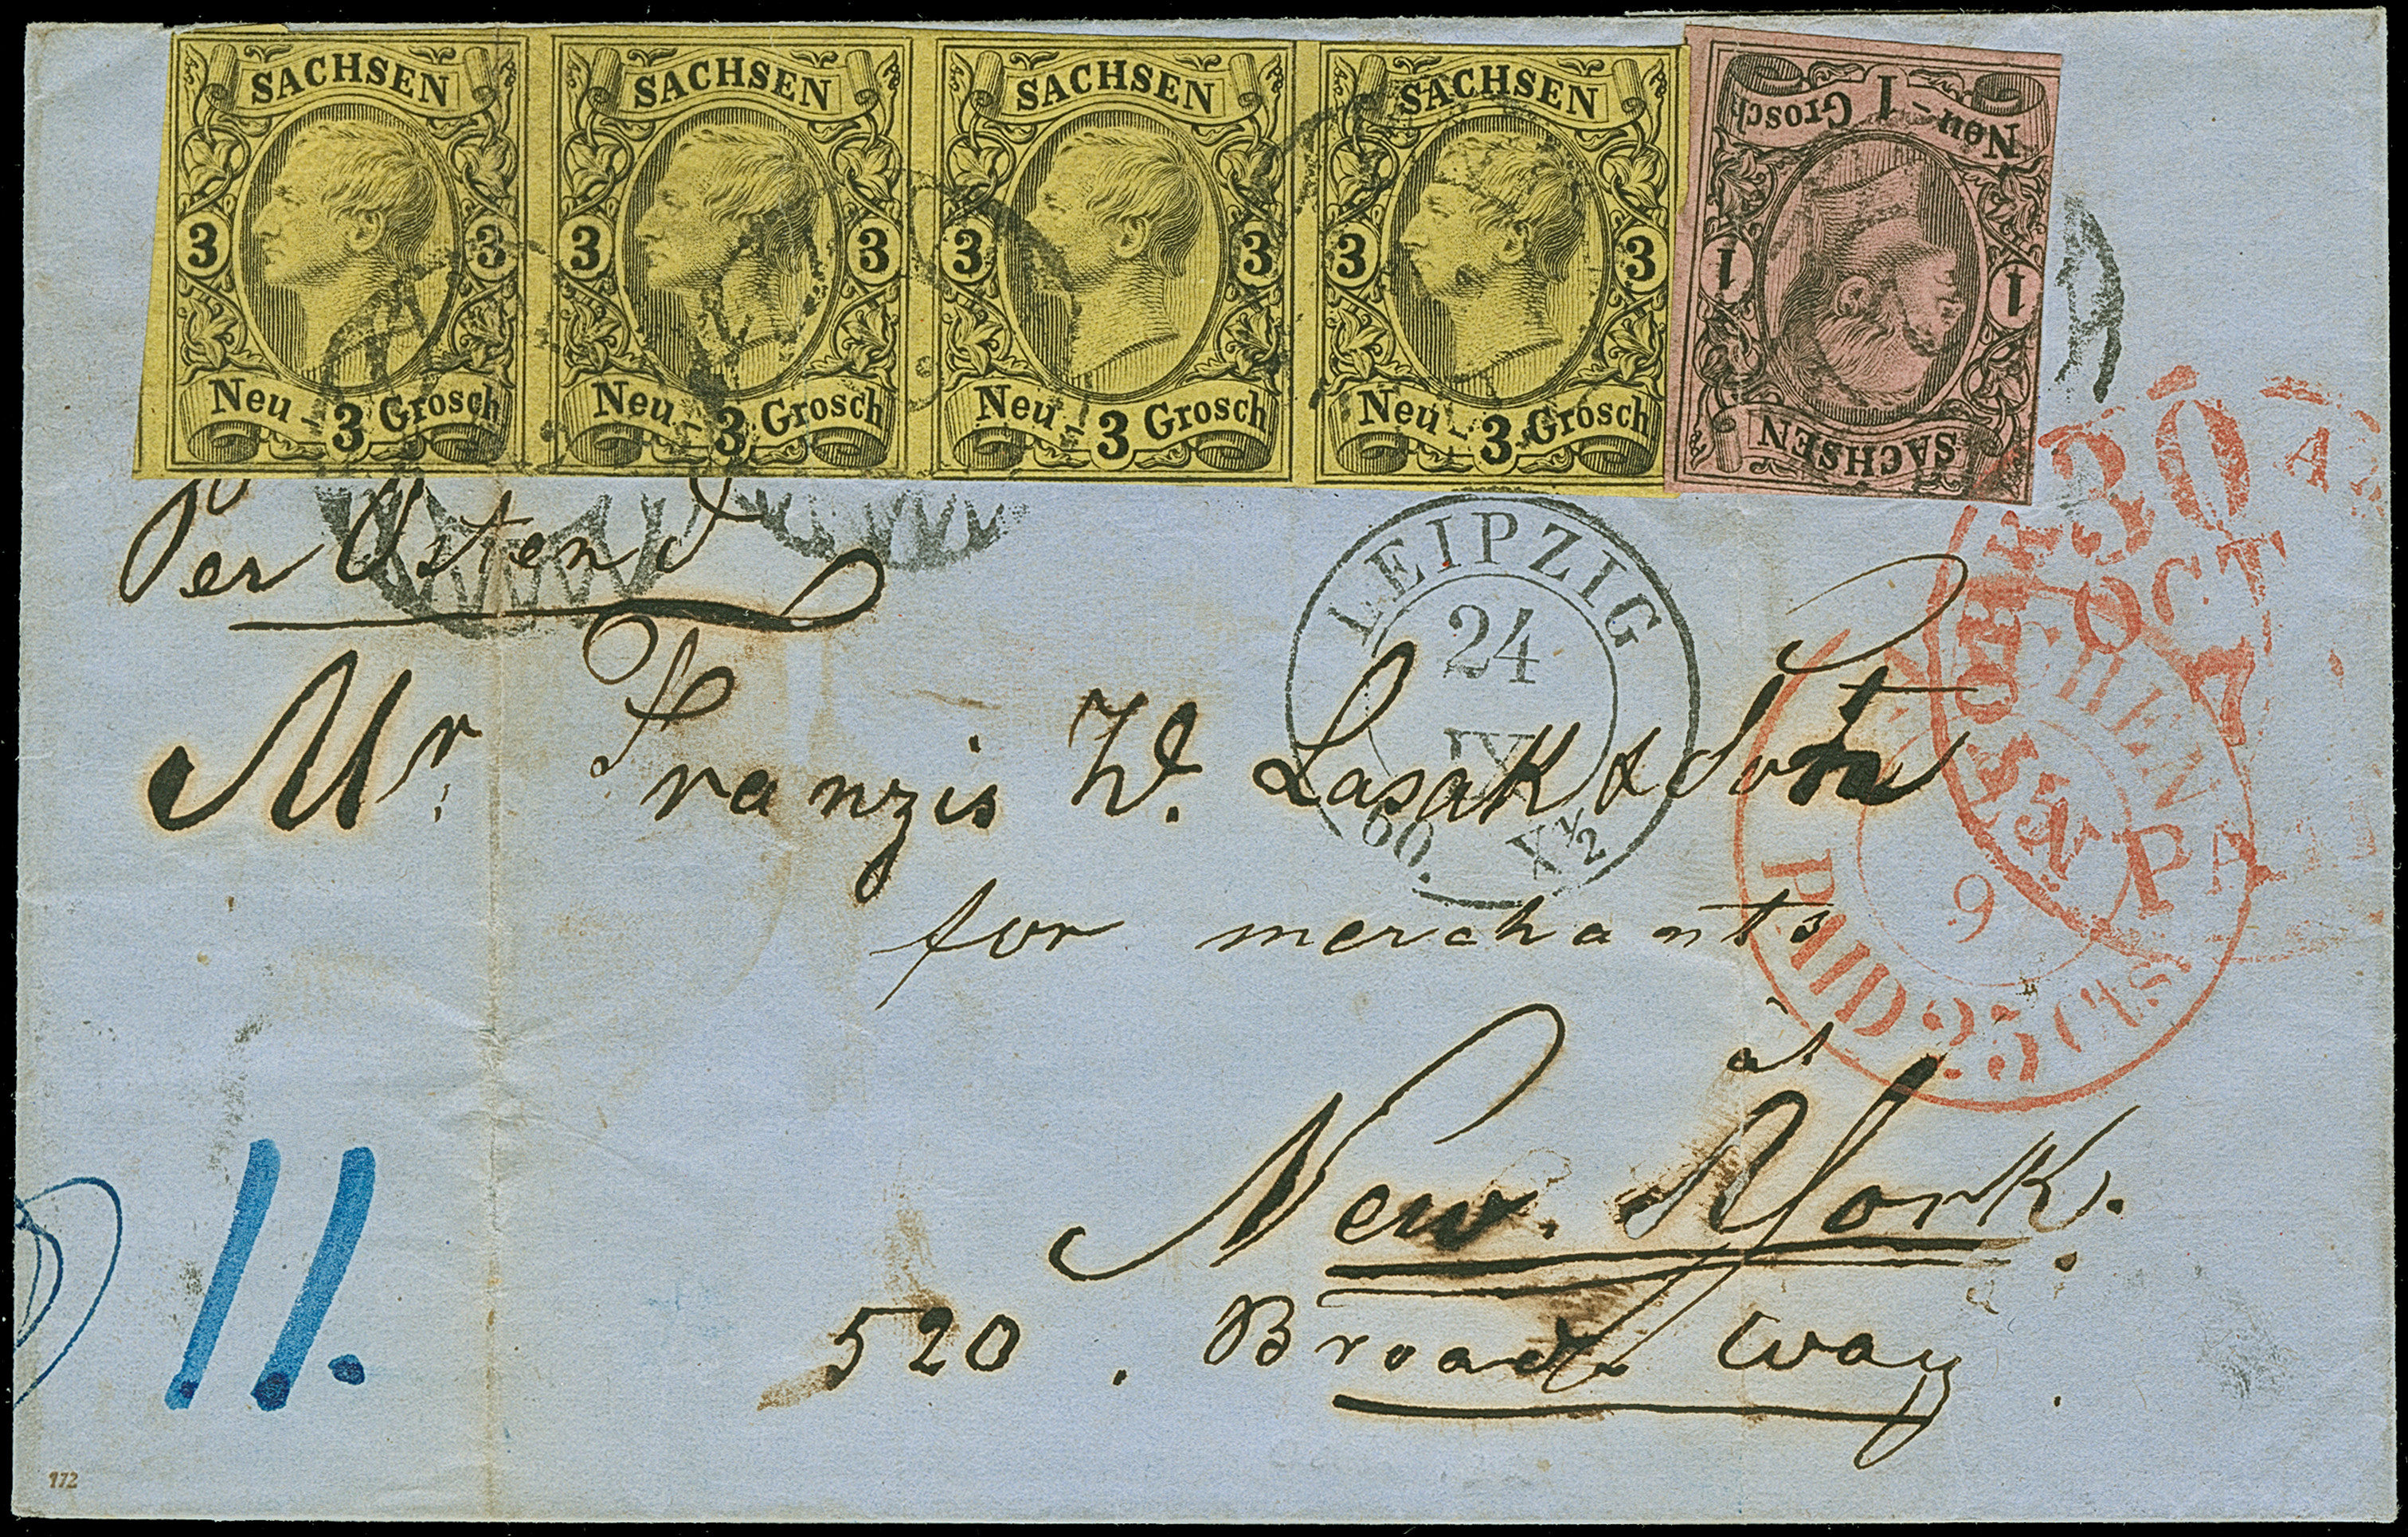 SACHSEN SACHSEN SACHSEN SACHSEN
3 3 3 3 3 3 3 3
Neu-3 Grosch Neu-3 Grosch Neu-3 Grosch Neu-3 Grosch
SACHSEN
1 1
Neu-1 Grosch
Per Ostend
LEIPZIG
24
IX
60. X½
30
OCT
7
Mr. Franzis W. Lasak & Son
AACHEN
9
PAID 25 Cts
for merchants
at
New. York.
520. Broad way
11.
972